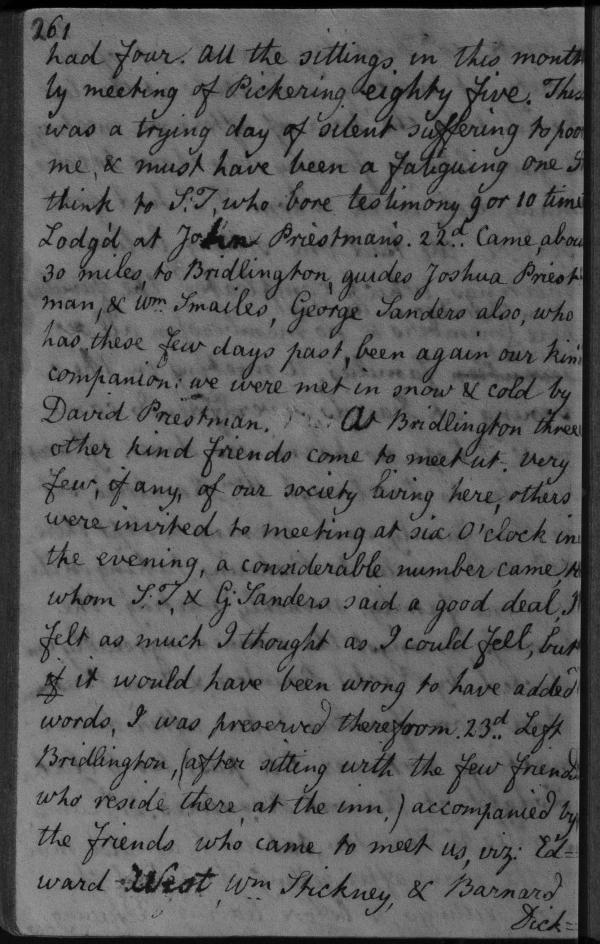 261
had four. all the sittings in this month
ly meeting of Pickering eighty five. This
was a trying day of silent suffering to poo
me, & must have been a fatiguing one I
think to S:T, who bore testimony 9 or 10 time
Lodg'd at John Priestman's. 22d. Came, abou
30 miles, to Bridlington, guides Joshua Priest
man, & Wm Smailes, George Sanders also, who
has, these few days past, been again our kin
companion: we were met in snow & cold by
David Priestman. At Bridlington three
other kind friends come to meet ut. very
few, if any, of our society living here, others
were invited to meeting at six O'clock in
the evening, a considerable number came, to
whom S:T, & G: Sanders said a good deal, I
felt as much I thought as I could fell, but
if it would have been wrong to have added
words, I was preserved therefrom. 23d. Left
Bridlington, (after sitting with the few friend
who reside there, at the inn,) accompanied by
the friends who came to meet us, viz: Ed=
ward West, Wm Stickney, & Barnard
Dick=